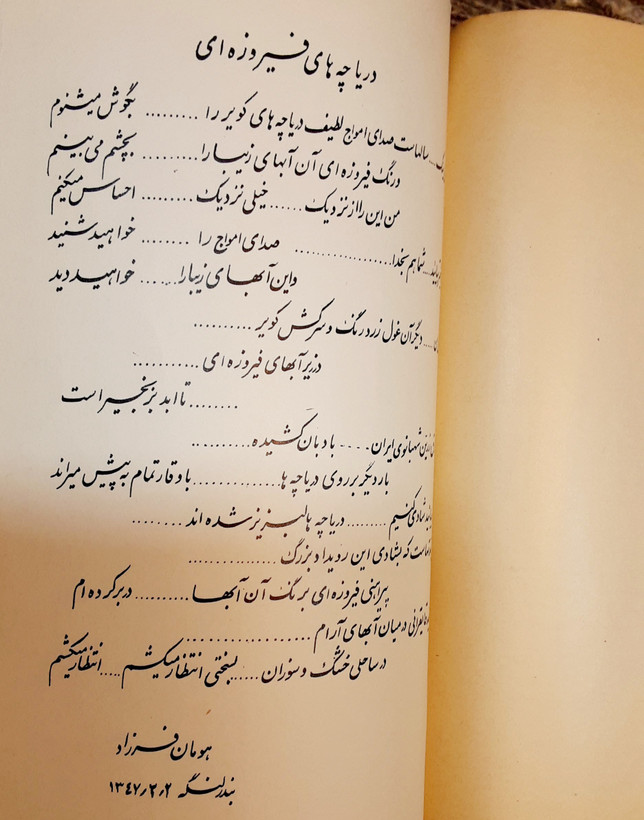 دریاچه های فیروزه ای
سالهاست صدای امواج لطیف دریاچه های کویر را ......... بگوش میشنوم
و رنگ فیروزه ای آن آبهای زیبا را .......... بچشم می بینم
من این را از نزدیک ...... خیلی نزدیک ......... احساس میکنم
شما هم بخدا .................. صدای امواج را ........ خواهید شنید
و این آبهای زیبا را ...... خواهید دید
دیگر آن غول زرد رنگ و سرکش کویر ..........
در زیر آبهای فیروزه ای ............
........ تا ابد بزنجیر است
شهبانوی ایران ..... بادبان کشیده ..........
بار دیگر بر روی دریاچه ها ............. با وقار تمام به پیش میراند
شادی کنیم ......... دریاچه ها لبریز شده اند ........
که بشادی این رویداد بزرگ ................
پیراهنی فیروزه ای برنگ آن آبها .......... در بر کرده ام
در میان آبهای آرام ....................
در ساحلی خشک و سوزان ...... بسختی انتظار میکشم ..... انتظار میکشم
هومان فرزاد
بندرلنگه ۱۳۴۷٫۲٫۲